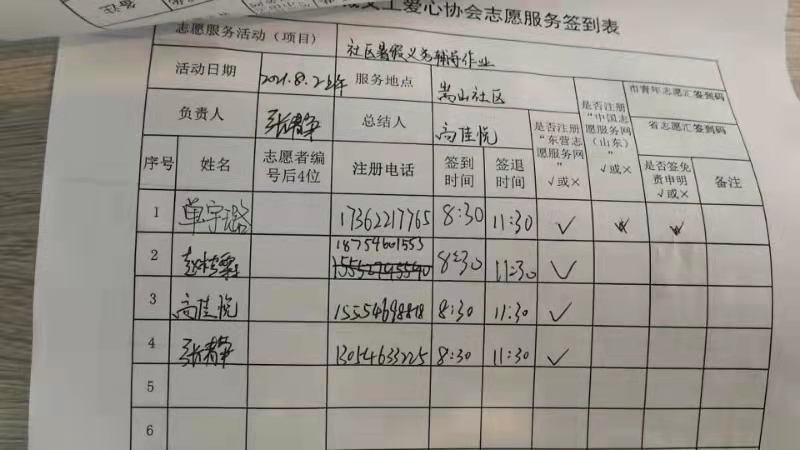 爱心协会志愿服务签到表
志愿服务活动（项目） 社区暑假义务辅导作业
活动日期 2021.8.2上午 服务地点 嵩山社区
负责人 张春争 总结人 高佳悦
是否注册“东营志愿服务网” √或×
是否注册“中国志愿服务网（山东）” √或×
市青年志愿汇签到码
省志愿汇签到码
序号 姓名 志愿者编号后4位 注册电话 签到时间 签退时间 是否签免责申明 √或× 备注
1 单宇璐 17362217765 8:30 11:30 √
2 18754601553 8:30 11:30 √
3 高佳悦 8:30 11:30 √
4 13054633225 8:30 11:30 √
5
6